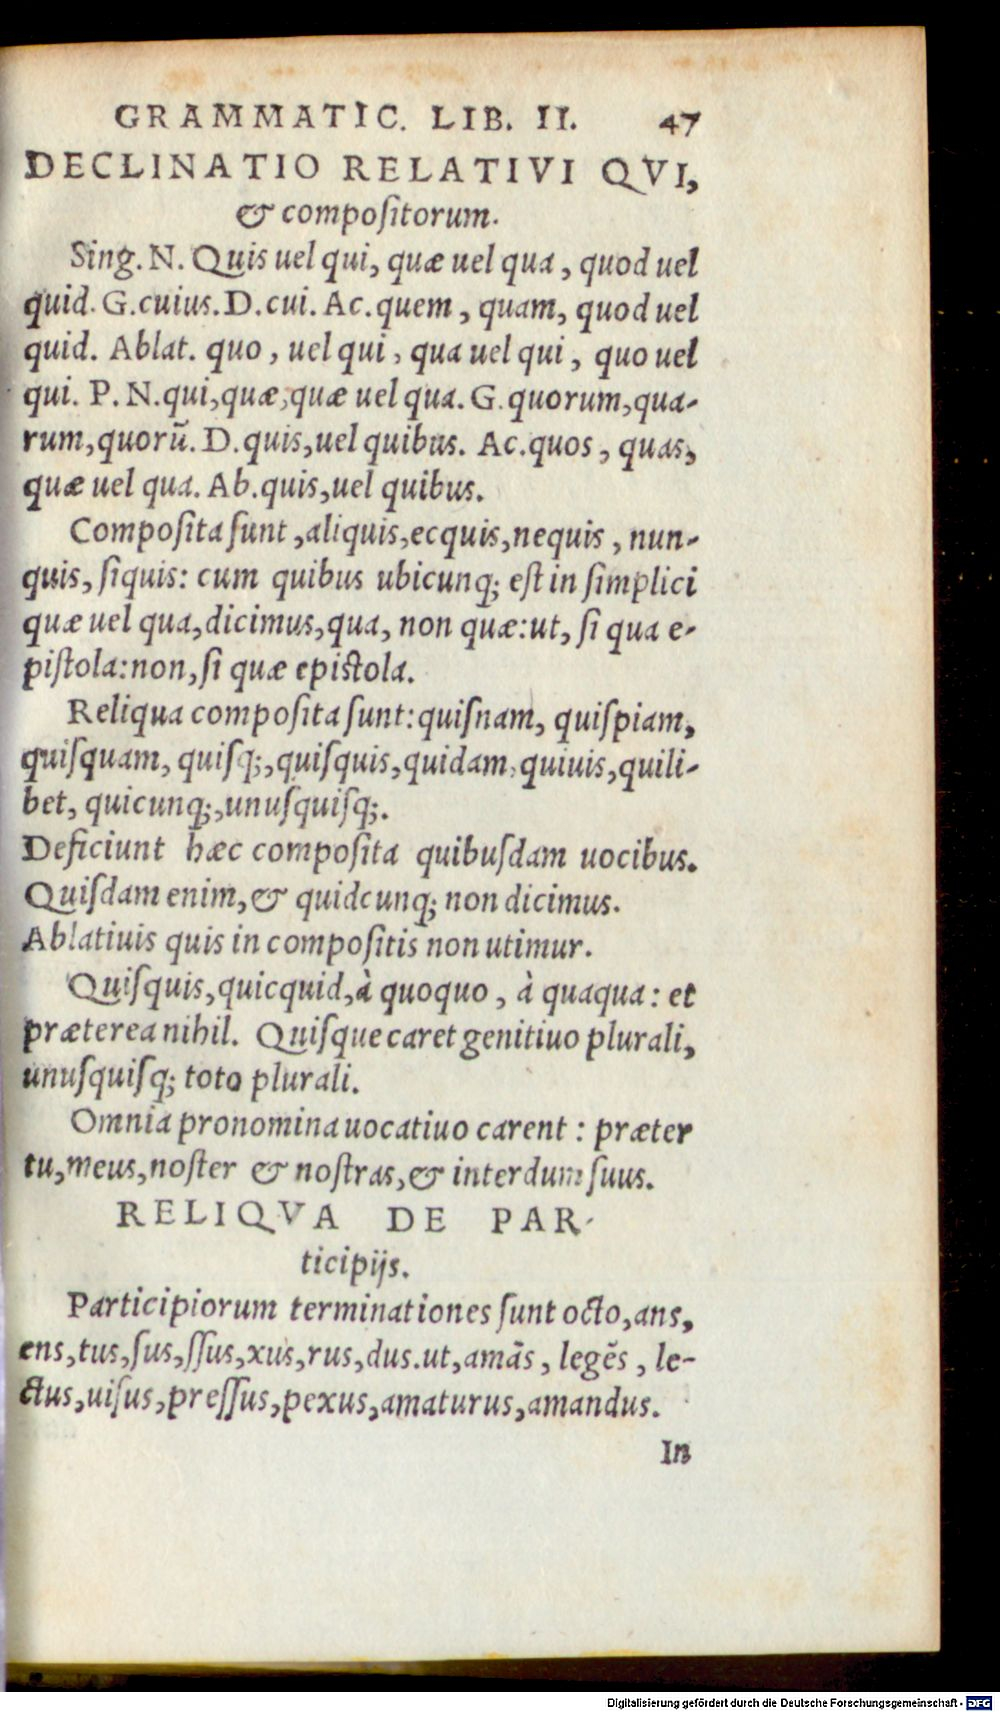 GRAMMATIC. LIB. II. 47
DECLINATIO RELATIVI QVI,
& compoſitorum.
Sing. N. Quis uel qui, quæ uel qua, quod uel
quid. G. cuius. D. cui. Ac. quem, quam, quod uel
quid. Ablat. quo, uel qui, qua uel qui, quo uel
qui. P. N. qui, quæ, quæ uel qua. G. quorum, qua-
rum, quorū. D. quis, uel quibus. Ac. quos, quas,
quæ uel qua. Ab. quis, uel quibus.
Compoſita ſunt, aliquis, ecquis, nequis, nun-
quis, ſiquis: cum quibus ubicunq; eſt in ſimplici
quæ uel qua, dicimus, qua, non quæ: ut, ſi qua e-
piſtola: non, ſi quæ epiſtola.
Reliqua compoſita ſunt: quiſnam, quiſpiam,
quiſquam, quiſq;, quiſquis, quidam, quiuis, quili-
bet, quicunq;, unuſquiſq;.
Deficiunt hæc compoſita quibuſdam uocibus.
Quiſdam enim, & quidcunq; non dicimus.
Ablatiuis quis in compoſitis non utimur.
Quiſquis, quicquid, à quoquo, à quaqua: et
præterea nihil. Quiſque caret genitiuo plurali,
unuſquiſq; toto plurali.
Omnia pronomina uocatiuo carent: præter
tu, meus, noſter & noſtras, & interdum ſuus.
RELIQVA DE PAR-
ticipijs.
Participiorum terminationes ſunt octo, ans,
ens, tus, ſus, ſſus, xus, rus, dus. ut, amãs, legẽs, le-
ctus, uiſus, preſſus, pexus, amaturus, amandus.
In
Digitalisierung gefördert durch die Deutsche Forschungsgemeinschaft - DFG